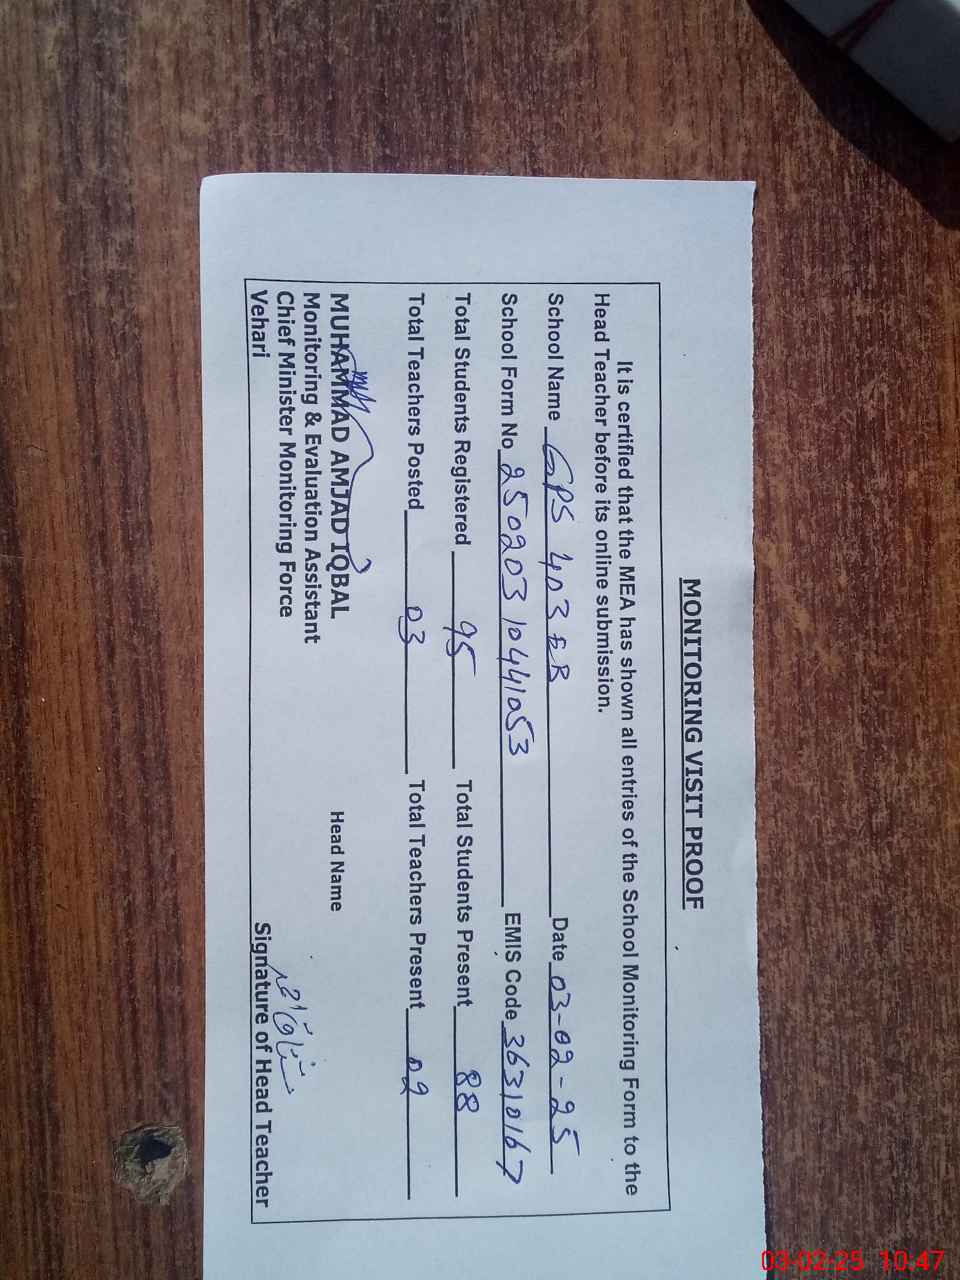 MONITORING VISIT PROOF
It is certified that the MEA has shown all entries of the School Monitoring Form to the
Head Teacher before its online submission.
School Name GPS 403 EB Date 03-02-25
School Form No 25020310441053 EMIS Code 36310167
Total Students Registered 95 Total Students Present 88
Total Teachers Posted 03 Total Teachers Present 02
MUHAMMAD AMJAD IQBAL Head Name
Monitoring & Evaluation Assistant
Chief Minister Monitoring Force
Vehari Signature of Head Teacher
03-02-25 10:47